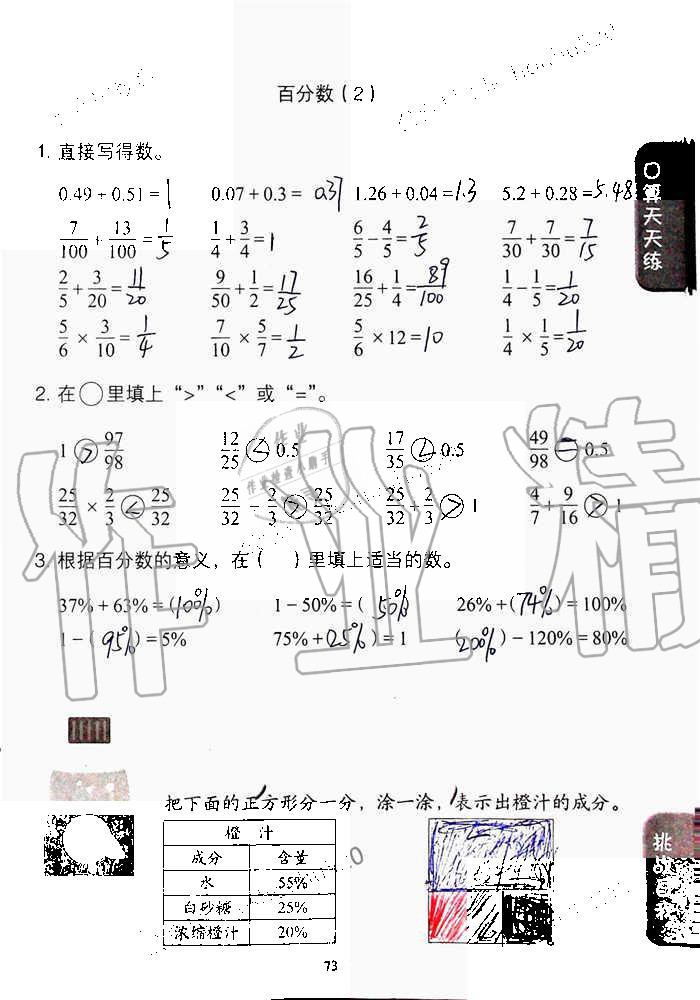 百分数（2）
1. 直接写得数。
0.49 + 0.51 = 1  0.07 + 0.3 = 0.37  1.26 + 0.04 = 1.3  5.2 + 0.28 = 5.48
7/100 + 13/100 = 1/5  1/4 + 3/4 = 1  6/5 − 4/5 = 2/5  7/30 + 7/30 = 7/15
2/5 + 3/20 = 11/20  9/50 + 1/2 = 17/25  16/25 + 1/4 = 89/100  1/4 − 1/5 = 1/20
5/6 × 3/10 = 1/4  7/10 × 5/7 = 1/2  5/6 × 12 = 10  1/4 × 1/5 = 1/20
口算天天练
2. 在○里填上“>”“<”或“=”。
1 > 97/98  12/25 < 0.5  17/35 < 0.5  49/98 = 0.5
25/32 × 2/3 < 25/32  25/32 − 2/3 > 25/32  25/32 + 2/3 > 1  4/7 + 9/16 > 1
3. 根据百分数的意义，在（ ）里填上适当的数。
37% + 63% = (100%)  1 − 50% = (50%)  26% + (74%) = 100%
1 − (95%) = 5%  75% + (25%) = 1  (200%) − 120% = 80%
把下面的正方形分一分，涂一涂，表示出橙汁的成分。
橙 汁
成分 含量
水 55%
白砂糖 25%
浓缩橙汁 20%
挑战自我
73
作业精
作业
作业检查小助手